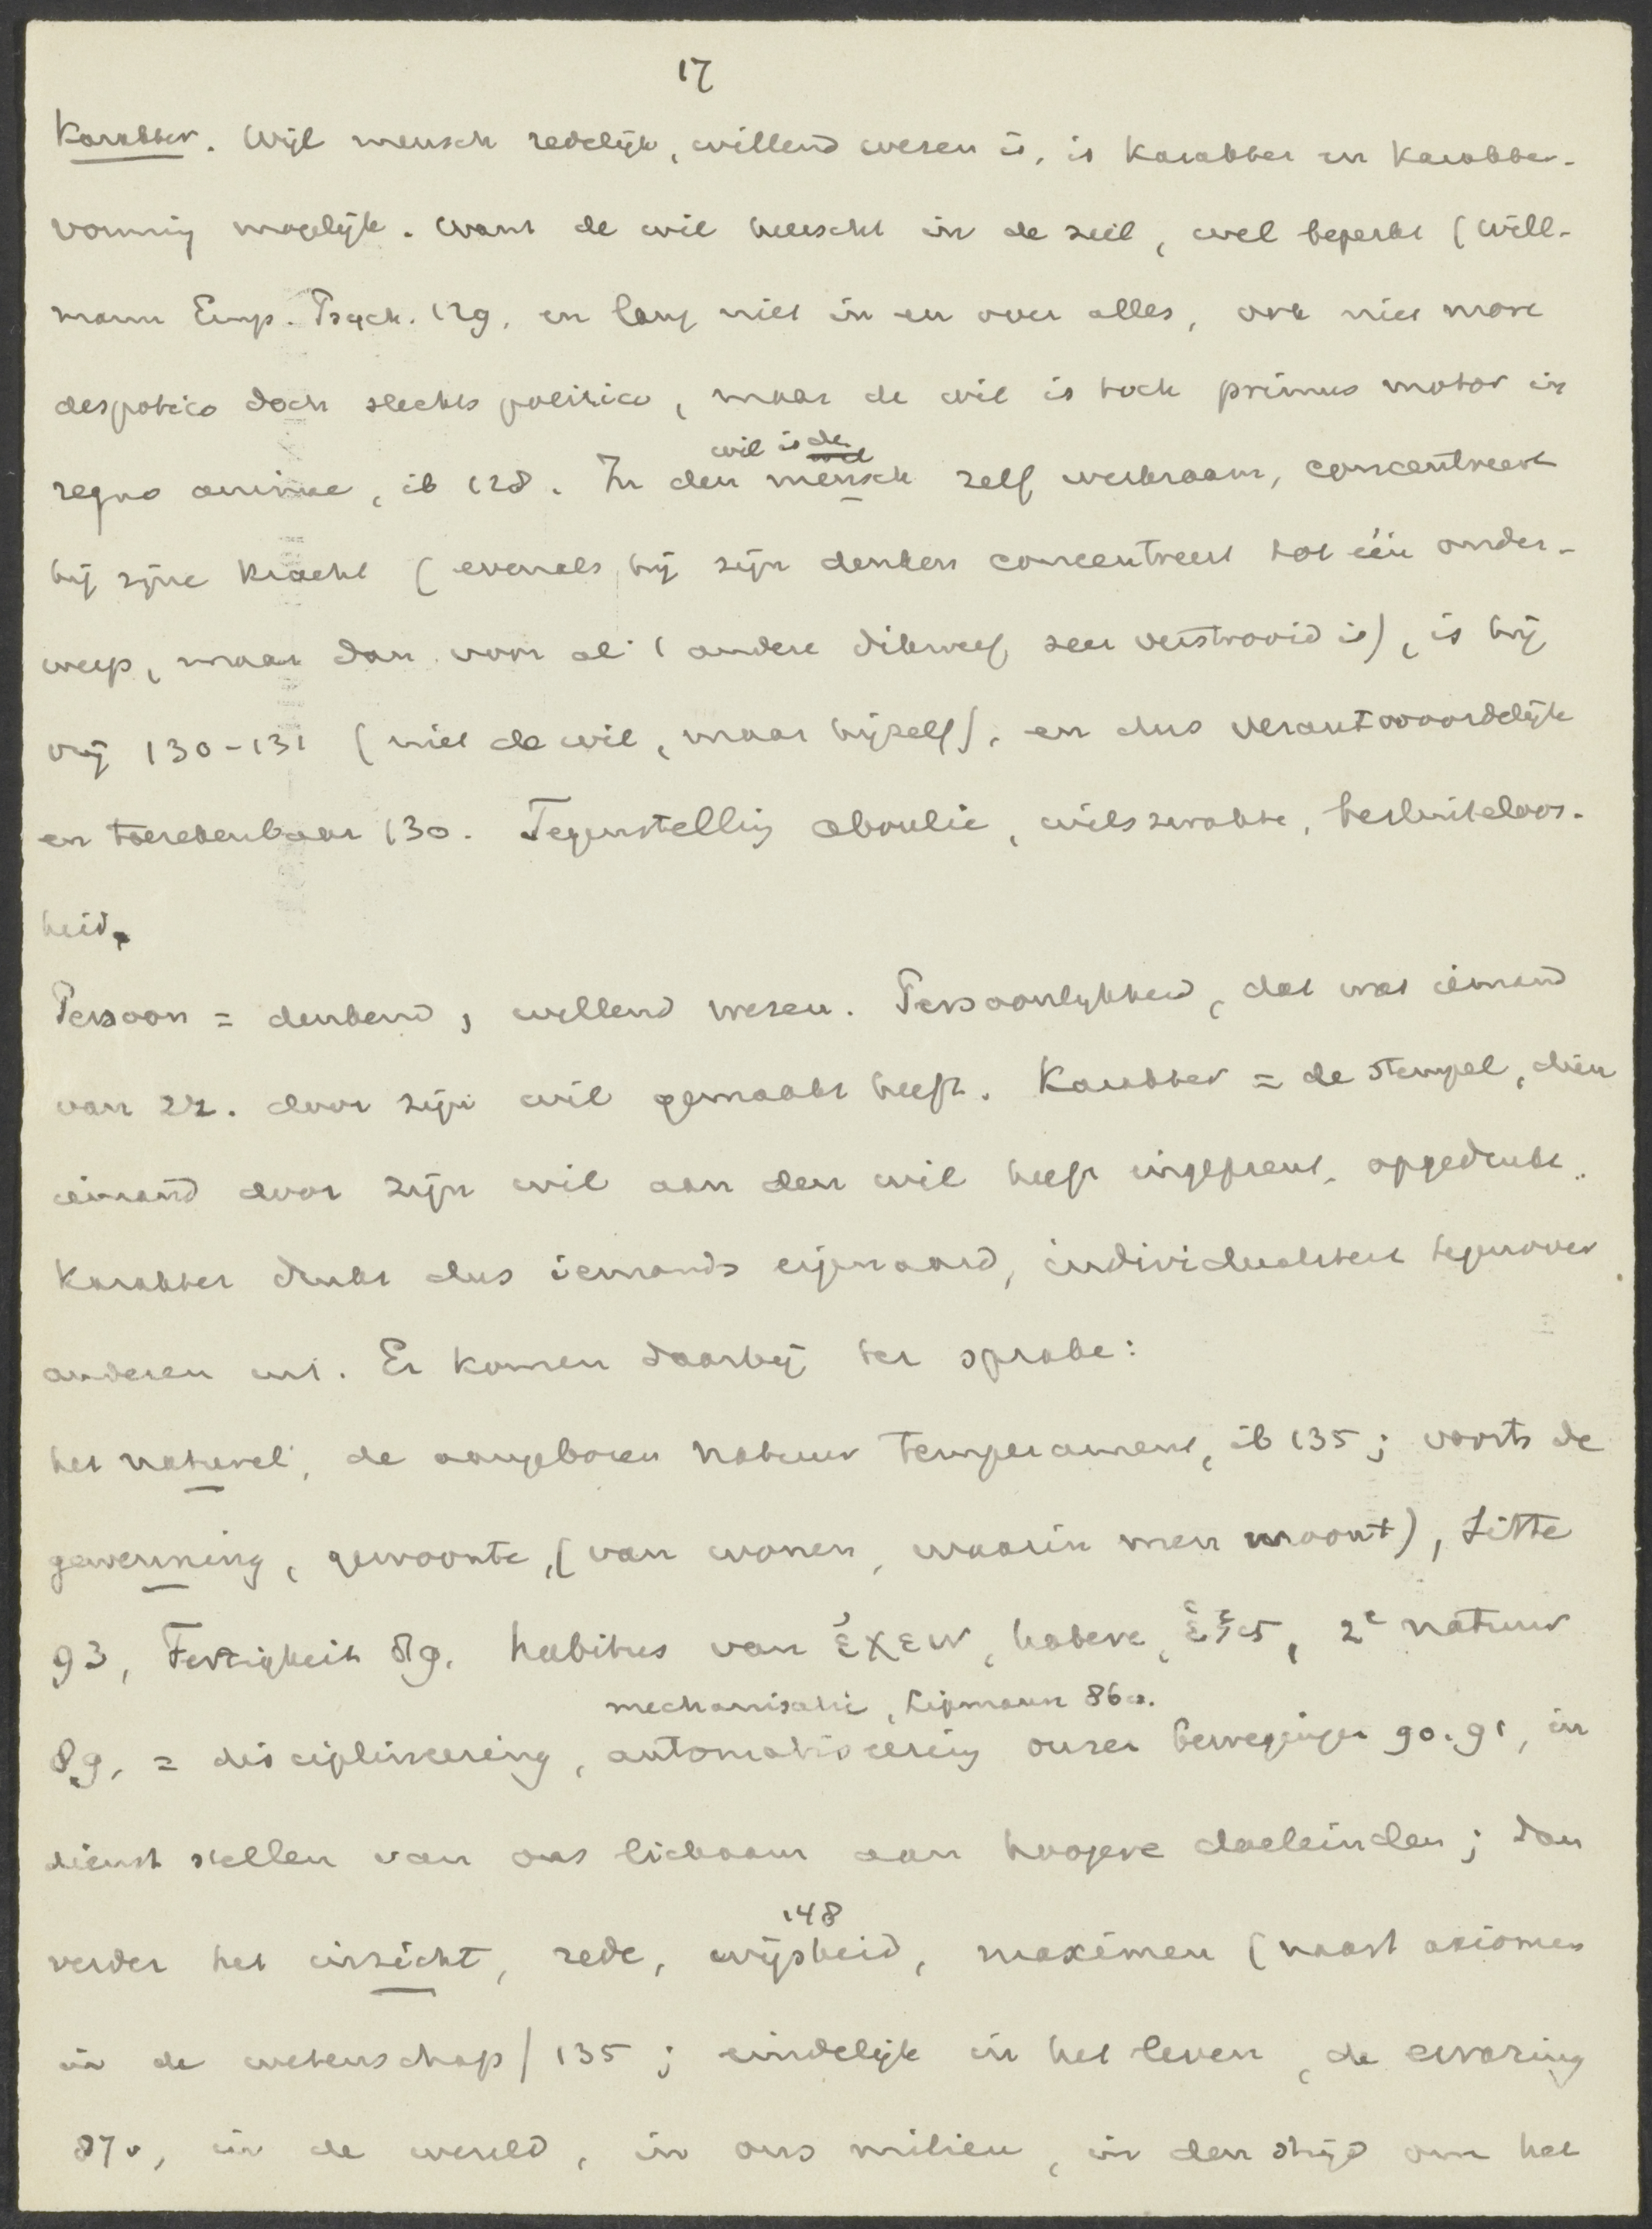 17
Karakter. Wijl mensch redelijk, willend wezen is, is karakter en karakter-
vorming mogelijk. Want de wil heerscht in de ziel, wel beperkt (Will-
mann Emp. Psych. 129, en lang niet in en over alles, ook niet more
despotico doch slechts politico, maar de wil is toch primus motor in
wil is de
regno animae, ib 128. In den mensch zelf werkzaam, concentreert
hij zijne kracht (evenals hij zijn denken concentreert tot één onder-
werp, maar dan voor al 't andere dikwerf zeer verstrooid is), is hij
vrij 130-131 (niet de wil, maar hijzelf), en dus verantwoordelijk
en toerekenbaar 130. Tegenstelling aboulie, wilszwakte, besluiteloos-
heid.
Persoon = denkend, willend wezen. Persoonlijkheid, dat wat iemand
van zz. door zijn wil gemaakt heeft. Karakter = de stempel, dien
iemand door zijn wil aan den wil heeft ingeprent, opgedrukt.
Karakter drukt dus iemands eigenaard, individualiteit tegenover
anderen uit. Er komen daarbij ter sprake:
het naturel, de aangeboren natuur temperament, ib 135; voorts de
gewenning, gewoonte, (van wonen, waarin men woont), Sitte
93, Fertigkeit 89, habitus van ἔχειν, habere, ἕξις, 2e natuur
mechanisatie, Ligmann 86a.
89, = disciplineering, automatiseering onzer bewegingen 90.91, in
dienst stellen van ons lichaam aan hoogere doeleinden; dan
148
verder het inzicht, rede, wijsheid, maximen (naast axiomen
in de wetenschap) 135; eindelijk in het leven, de ervaring
87v, in de wereld, in ons milieu, in den strijd om het